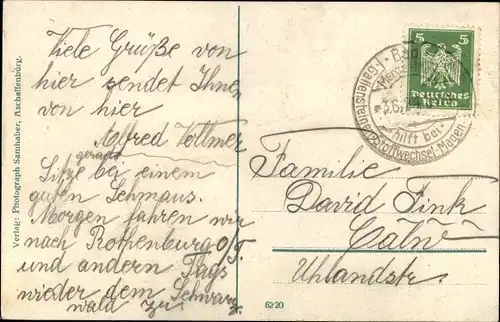 Verlag: Photograph Samhaber, Aschaffenburg.
Viele Grüße von
hier sendet Ihnen
von hier
Alfred Vollmer
gerade
Sitze bei einem
guten Schmaus.
Morgen fahren wir
nach Rothenburg o/T.
und andern Tags
wieder dem Schwarz
wald zu
Bad
3.6.
hilft bei
Stoffwechsel-Magen-
5 5
Deutsches
Reich
Familie
David Fink
Calw
Uhlandstr.
6220